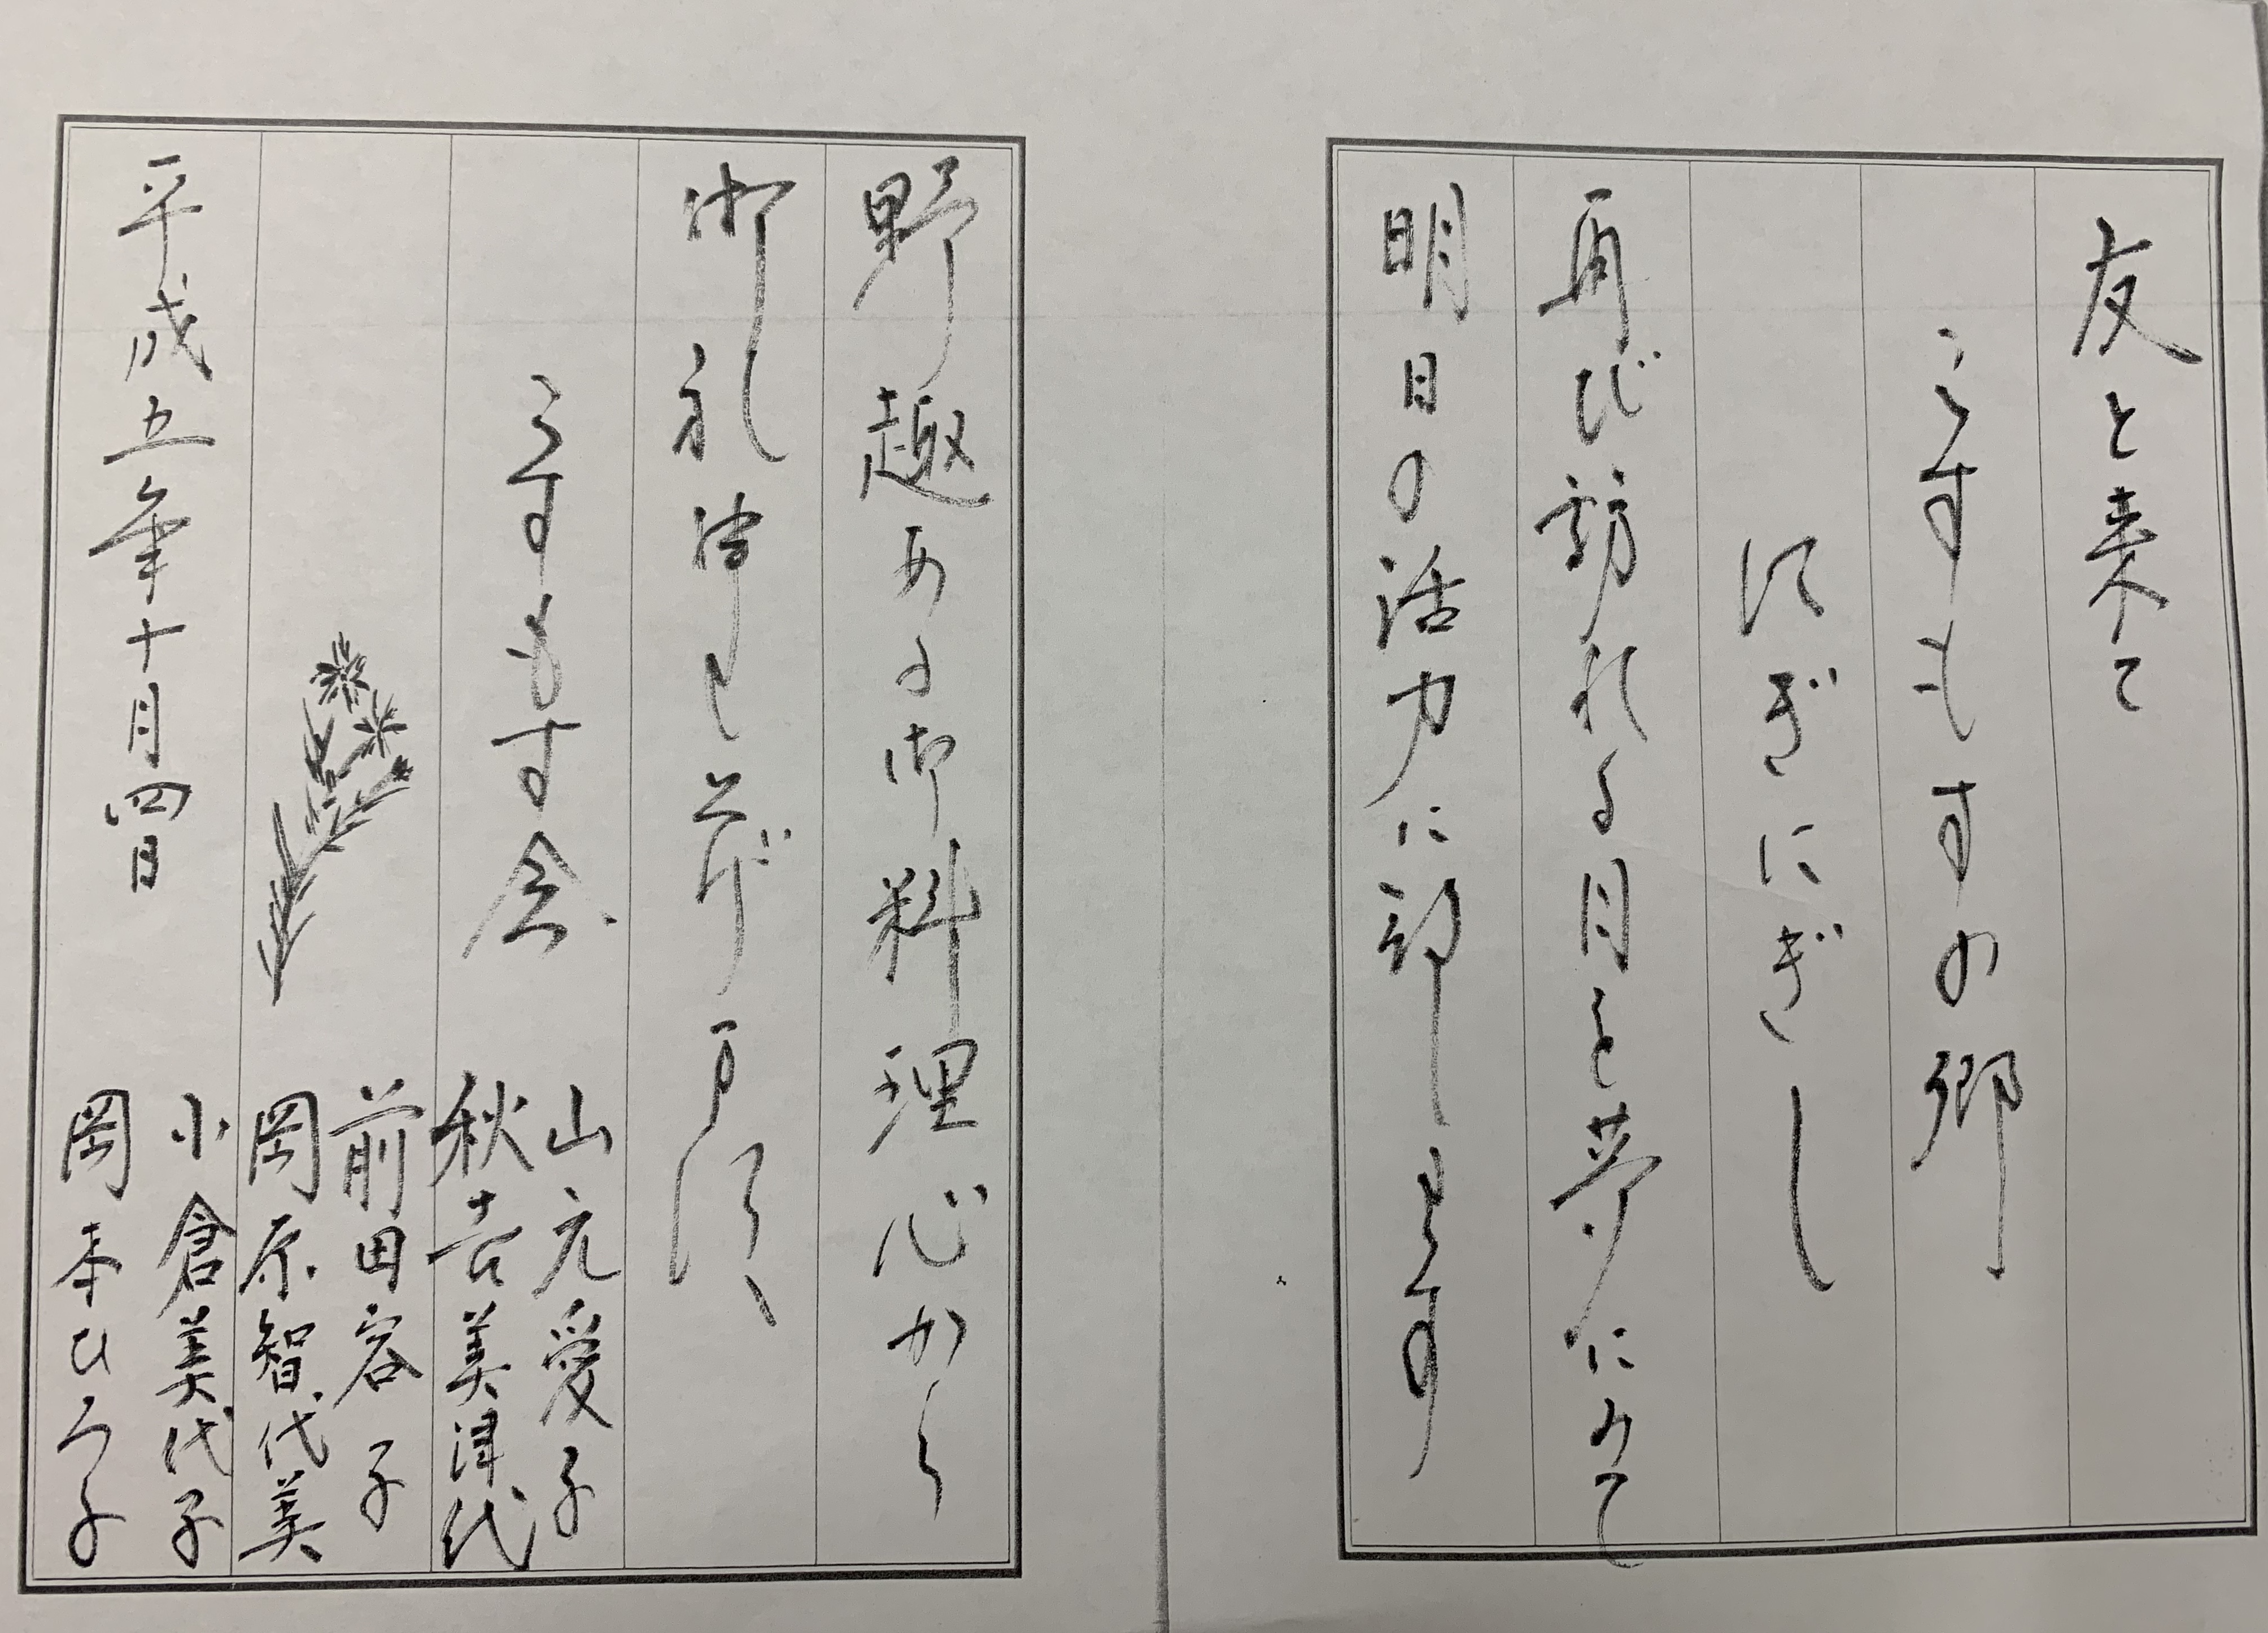 友と来て
こすもすの郷
にぎにぎし
再び訪れる日を夢にみて
明日の活力に
野趣ある御料理心から
御礼申し上げ
こすもす会
山元愛子
秋吉美津代
前田容子
岡原智代美
平成五年十月四日
小倉美代子
岡本ひろ子